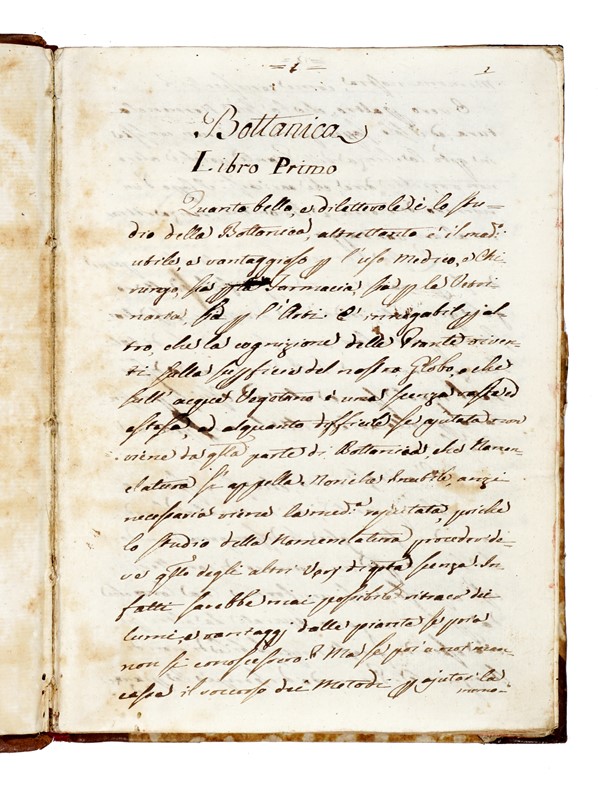 = 1 =
1
Bottanica
Libro Primo
Quanto bella, e dilettevole è lo stu=
dio della Bottanica, altrettanto è il med:
utile e vantaggioso p l'uso Medico, e Chi
rurgo, sia p la Farmacia, sia p la Veteri
naria, sia p l'Arti. E' innegabil p al
tro, che la cognizione delle Piante viven
ti sulla superficie del nostro Globo, e che
sull' acque vegetano è una scienza vasta ed
estesa, ed alquanto difficile se ajutata non
viene da qta parte di Bottanica, che Nomen=
clatura si appella. Non che inutile, anzi
necessaria viene la med.a reputata, poichè
lo studio della Nomenclatura preceder de=
ve qllo degli altri di qta scienza. In
fatti sarebbe mai possibile ritrarre dei
lumi, e vantaggj dalle piante se pria
non si conoscessero? Ma se poi a noi man
casse il soccorso dei Metodi p ajutar la